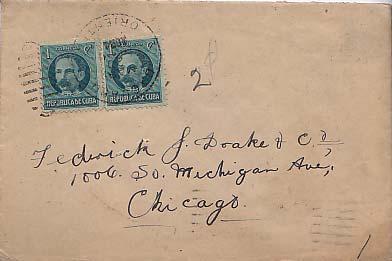 ORIENTE
1 CORREOS C. 1 CORREOS C.
REPUBLICA DE CUBA REPUBLICA DE CUBA
2
Federick J. Drake & Co
1006. So. Michigan Ave,
Chicago.
1